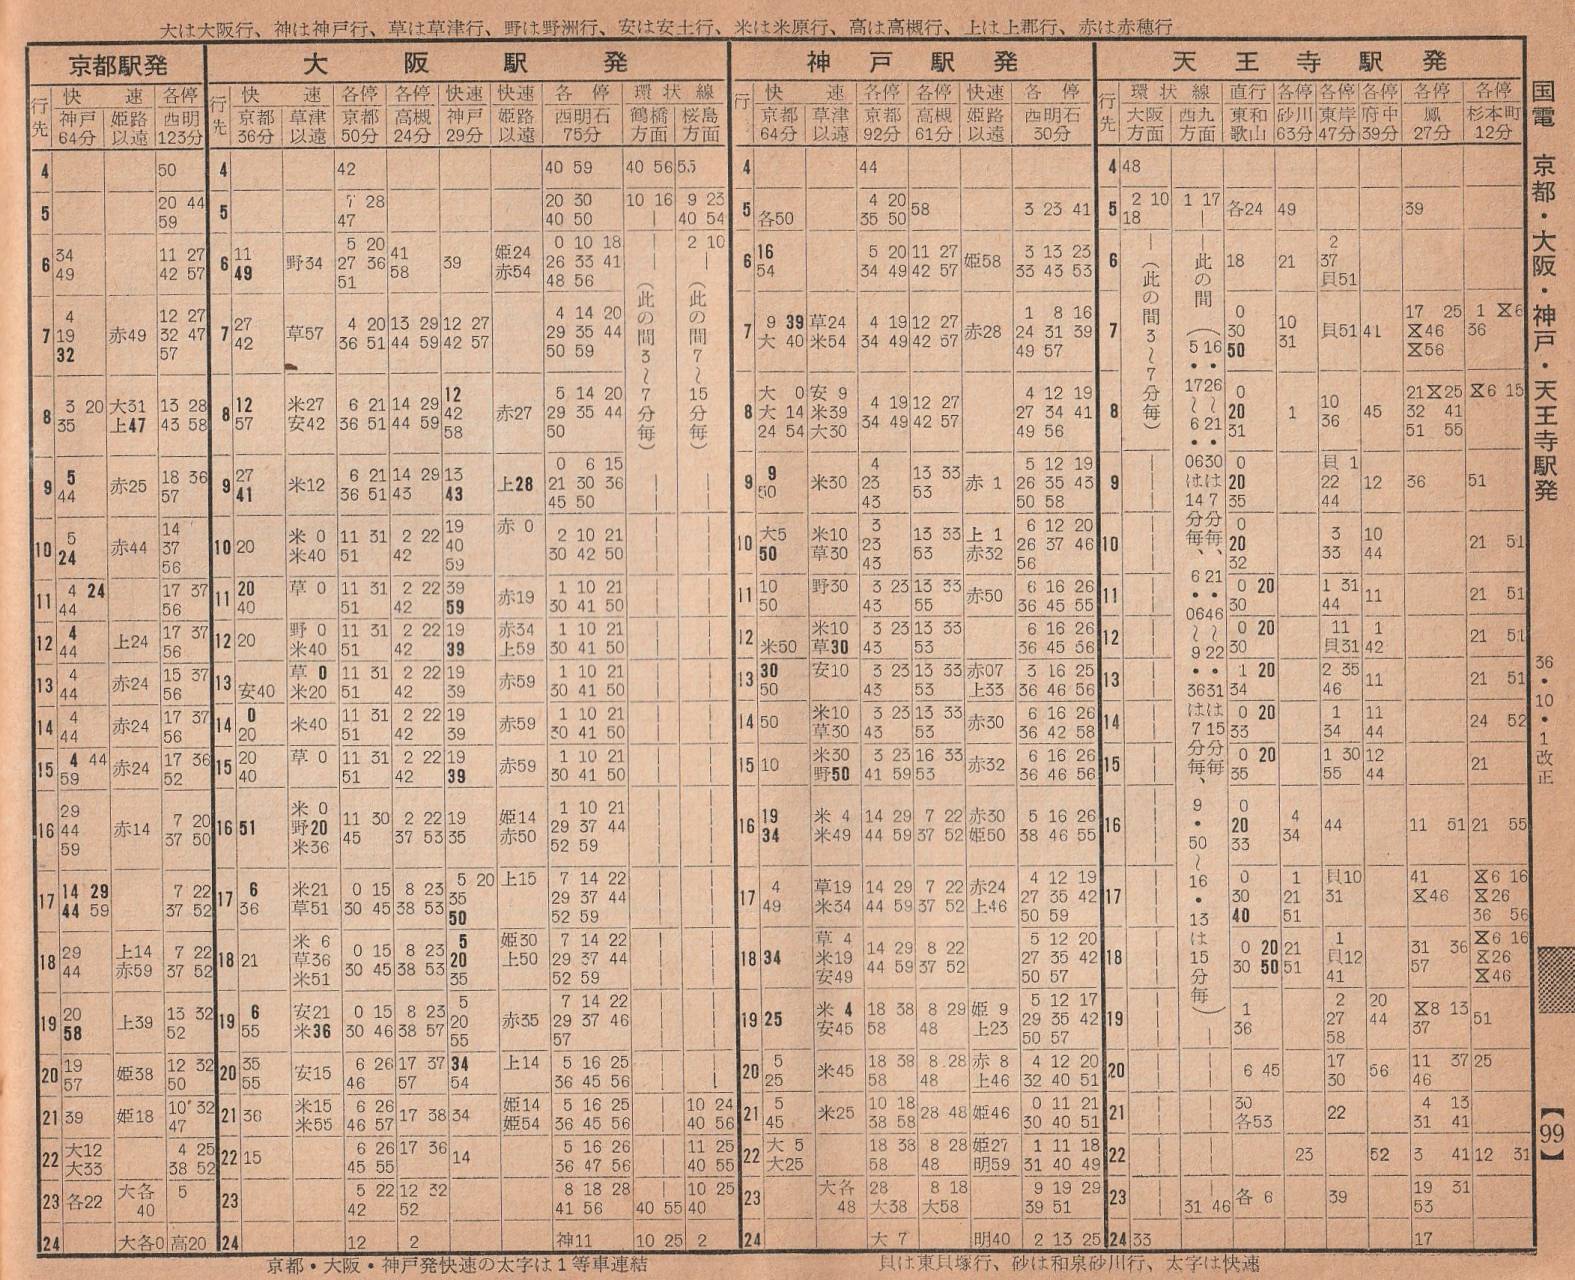 大は大阪行、神は神戸行、草は草津行、野は野洲行、安は安土行、米は米原行、高は高槻行、上は上郡行、赤は赤穂行
京都駅発 大阪駅発 神戸駅発 天王寺駅発
行先 快速 各停 行先 快速 各停 各停 快速 快速 各停 環状線 行 快速 各停 各停 快速 各停 行先 環状線 直行 各停 各停 各停 各停 各停
神戸64分 姫路以遠 西明123分 京都36分 草津以遠 京都50分 高槻24分 神戸29分 姫路以遠 西明石75分 鶴橋方面 桜島方面 京都64分 草津以遠 京都92分 高槻61分 姫路以遠 西明石30分 大阪方面 西九方面 東和歌山 砂川63分 東岸47分 府中39分 鳳27分 杉本町12分
4 50 4 42 40 59 40 56 55 4 44 4 48
5 20 44 59 5 7 28 47 20 30 40 50 10 16 9 23 40 54 5 各50 4 20 35 50 58 3 23 41 5 2 10 18 1 17 各24 49 39
6 34 49 11 27 42 57 6 11 49 野34 5 20 27 36 51 41 58 39 姫24 赤54 0 10 18 26 33 41 48 56 2 10 6 16 54 5 20 34 49 11 27 42 57 姫58 3 13 23 33 43 53 6 18 21 2 37 貝51
7 4 19 32 赤49 12 27 32 47 57 7 27 42 草57 4 20 36 51 13 29 44 59 12 27 42 57 4 14 20 29 35 44 50 59 7 9 39 大40 草24 米54 4 19 34 49 12 27 42 57 赤28 1 8 16 24 31 39 49 57 7 0 30 50 10 31 貝51 41 17 25 ⧖46 ⧖56 1 ⧖6 36
8 3 20 35 大31 上47 13 28 43 58 8 12 57 米27 安42 6 21 36 51 14 29 44 59 12 42 58 赤27 5 14 20 29 35 44 50 8 大0 大14 24 54 安9 米39 大30 4 19 34 49 12 27 42 57 4 12 19 27 34 41 49 56 8 0 20 31 1 10 36 45 21 ⧖25 32 41 51 55 ⧖6 15
9 5 44 赤25 18 36 57 9 27 41 米12 6 21 36 51 14 29 43 13 43 上28 0 6 15 21 30 36 45 50 9 9 50 米30 4 23 43 13 33 53 赤1 5 12 19 26 35 43 50 58 9 0 20 35 貝1 22 44 12 36 51
10 5 24 赤44 14 37 56 10 20 米0 米40 11 31 51 2 22 42 19 40 59 赤0 2 10 21 30 42 50 10 大5 50 米10 草30 3 23 43 13 33 53 上1 赤32 6 12 20 26 37 46 56 10 0 20 32 3 33 10 44 21 51
11 4 24 44 17 37 56 11 20 40 草0 11 31 51 2 22 42 39 59 赤19 1 10 21 30 41 50 11 10 50 野30 3 23 43 13 33 55 赤50 6 16 26 36 45 55 11 0 20 30 1 31 44 11 21 51
12 4 44 上24 17 37 56 12 20 野0 米40 11 31 51 2 22 42 19 39 赤34 上59 1 10 21 30 41 50 12 米50 米10 草30 3 23 43 13 33 53 6 16 26 36 45 56 12 0 20 11 貝31 1 42 21 51
13 4 44 赤24 15 37 56 13 安40 草0 米20 11 31 51 2 22 42 19 39 赤59 1 10 21 30 41 50 13 30 50 安10 3 23 43 13 33 53 赤07 上33 3 16 25 36 46 56 13 1 20 34 2 35 46 11 21 51
14 4 44 赤24 17 37 56 14 0 20 米40 11 31 51 2 22 42 19 39 赤59 1 10 21 30 41 50 14 50 米10 草30 3 23 43 13 33 53 赤30 6 16 26 36 42 58 14 0 20 33 1 34 11 44 24 52
15 4 44 59 赤24 17 36 52 15 20 40 草0 11 31 51 2 22 42 19 39 赤59 1 10 21 30 41 50 15 10 米30 野50 3 23 41 59 16 33 53 赤32 6 16 26 36 46 56 15 0 20 35 1 30 55 12 44 21
16 29 44 59 赤14 7 20 37 50 16 51 米0 野20 米36 11 30 45 2 22 37 53 19 35 姫14 赤50 1 10 21 29 37 44 52 59 16 19 34 米4 米49 14 29 44 59 7 22 37 52 赤30 姫50 5 16 26 38 46 55 16 0 20 33 4 34 44 11 51 21 55
17 14 29 44 59 7 22 37 52 17 6 36 米21 草51 0 15 30 45 8 23 38 53 5 20 35 50 上15 7 14 22 29 37 44 52 59 17 4 49 草19 米34 14 29 44 59 7 22 37 52 赤24 上46 4 12 19 27 35 42 50 59 17 0 30 40 1 21 51 貝10 31 41 ⧖46 ⧖6 16 ⧖26 36 56
18 29 44 上14 赤59 7 22 37 52 18 21 米6 草36 米51 0 15 30 45 8 23 38 53 5 20 35 姫30 上50 7 14 22 29 37 44 52 59 18 34 草4 米19 安49 14 29 44 59 8 22 37 52 5 12 20 27 35 42 50 57 18 0 20 30 50 21 51 1 貝12 41 31 36 57 ⧖6 16 ⧖26 ⧖46
19 20 58 上39 13 32 52 19 6 55 安21 米36 0 15 30 46 8 23 38 57 5 20 55 赤35 7 14 22 29 37 46 57 19 25 米4 安45 18 38 58 8 29 48 姫9 上23 5 12 17 29 35 42 50 57 19 1 36 2 27 58 20 44 ⧖8 13 37 51
20 19 57 姫38 12 32 50 20 35 55 安15 6 26 46 17 37 57 34 54 上14 5 16 25 36 45 56 20 5 25 米45 18 39 58 8 28 48 赤8 上46 4 12 20 32 40 51 20 6 45 17 30 56 11 37 46 25
21 39 姫18 10 32 47 21 36 米15 米55 6 26 46 57 17 38 34 姫14 姫54 5 16 25 36 45 56 10 24 40 56 21 5 45 米25 10 18 38 58 28 48 姫46 0 11 21 30 40 51 21 30 各53 22 4 13 31 41
22 大12 大33 4 25 38 52 22 15 6 26 45 55 17 36 14 5 16 26 36 47 56 11 25 40 55 22 大5 大25 18 38 58 8 28 48 姫27 明59 1 11 18 31 40 49 22 23 52 3 41 12 31
23 各22 大各40 5 23 5 22 42 12 32 52 8 18 28 41 56 40 55 10 25 40 23 大各48 28 大38 8 18 大58 9 19 29 39 51 23 31 46 各6 39 19 31 53
24 大各0 高20 24 12 2 神11 10 25 2 24 大7 明40 2 13 25 24 33 17
(此の間3〜7分毎)
(此の間7〜15分毎)
(此の間3〜7分毎)
此の間(5・16・17 26〜〜6 21・・06 30はは14 7分分毎毎、、6 21・・06 46〜〜9 22・・36 31はは7 15分分毎毎、9・50〜16・13は15分毎)
京都・大阪・神戸発快速の太字は1等車連結
貝は東貝塚行、砂は和泉砂川行、太字は快速
国電 京都・大阪・神戸・天王寺駅発
36・10・1改正
【99】